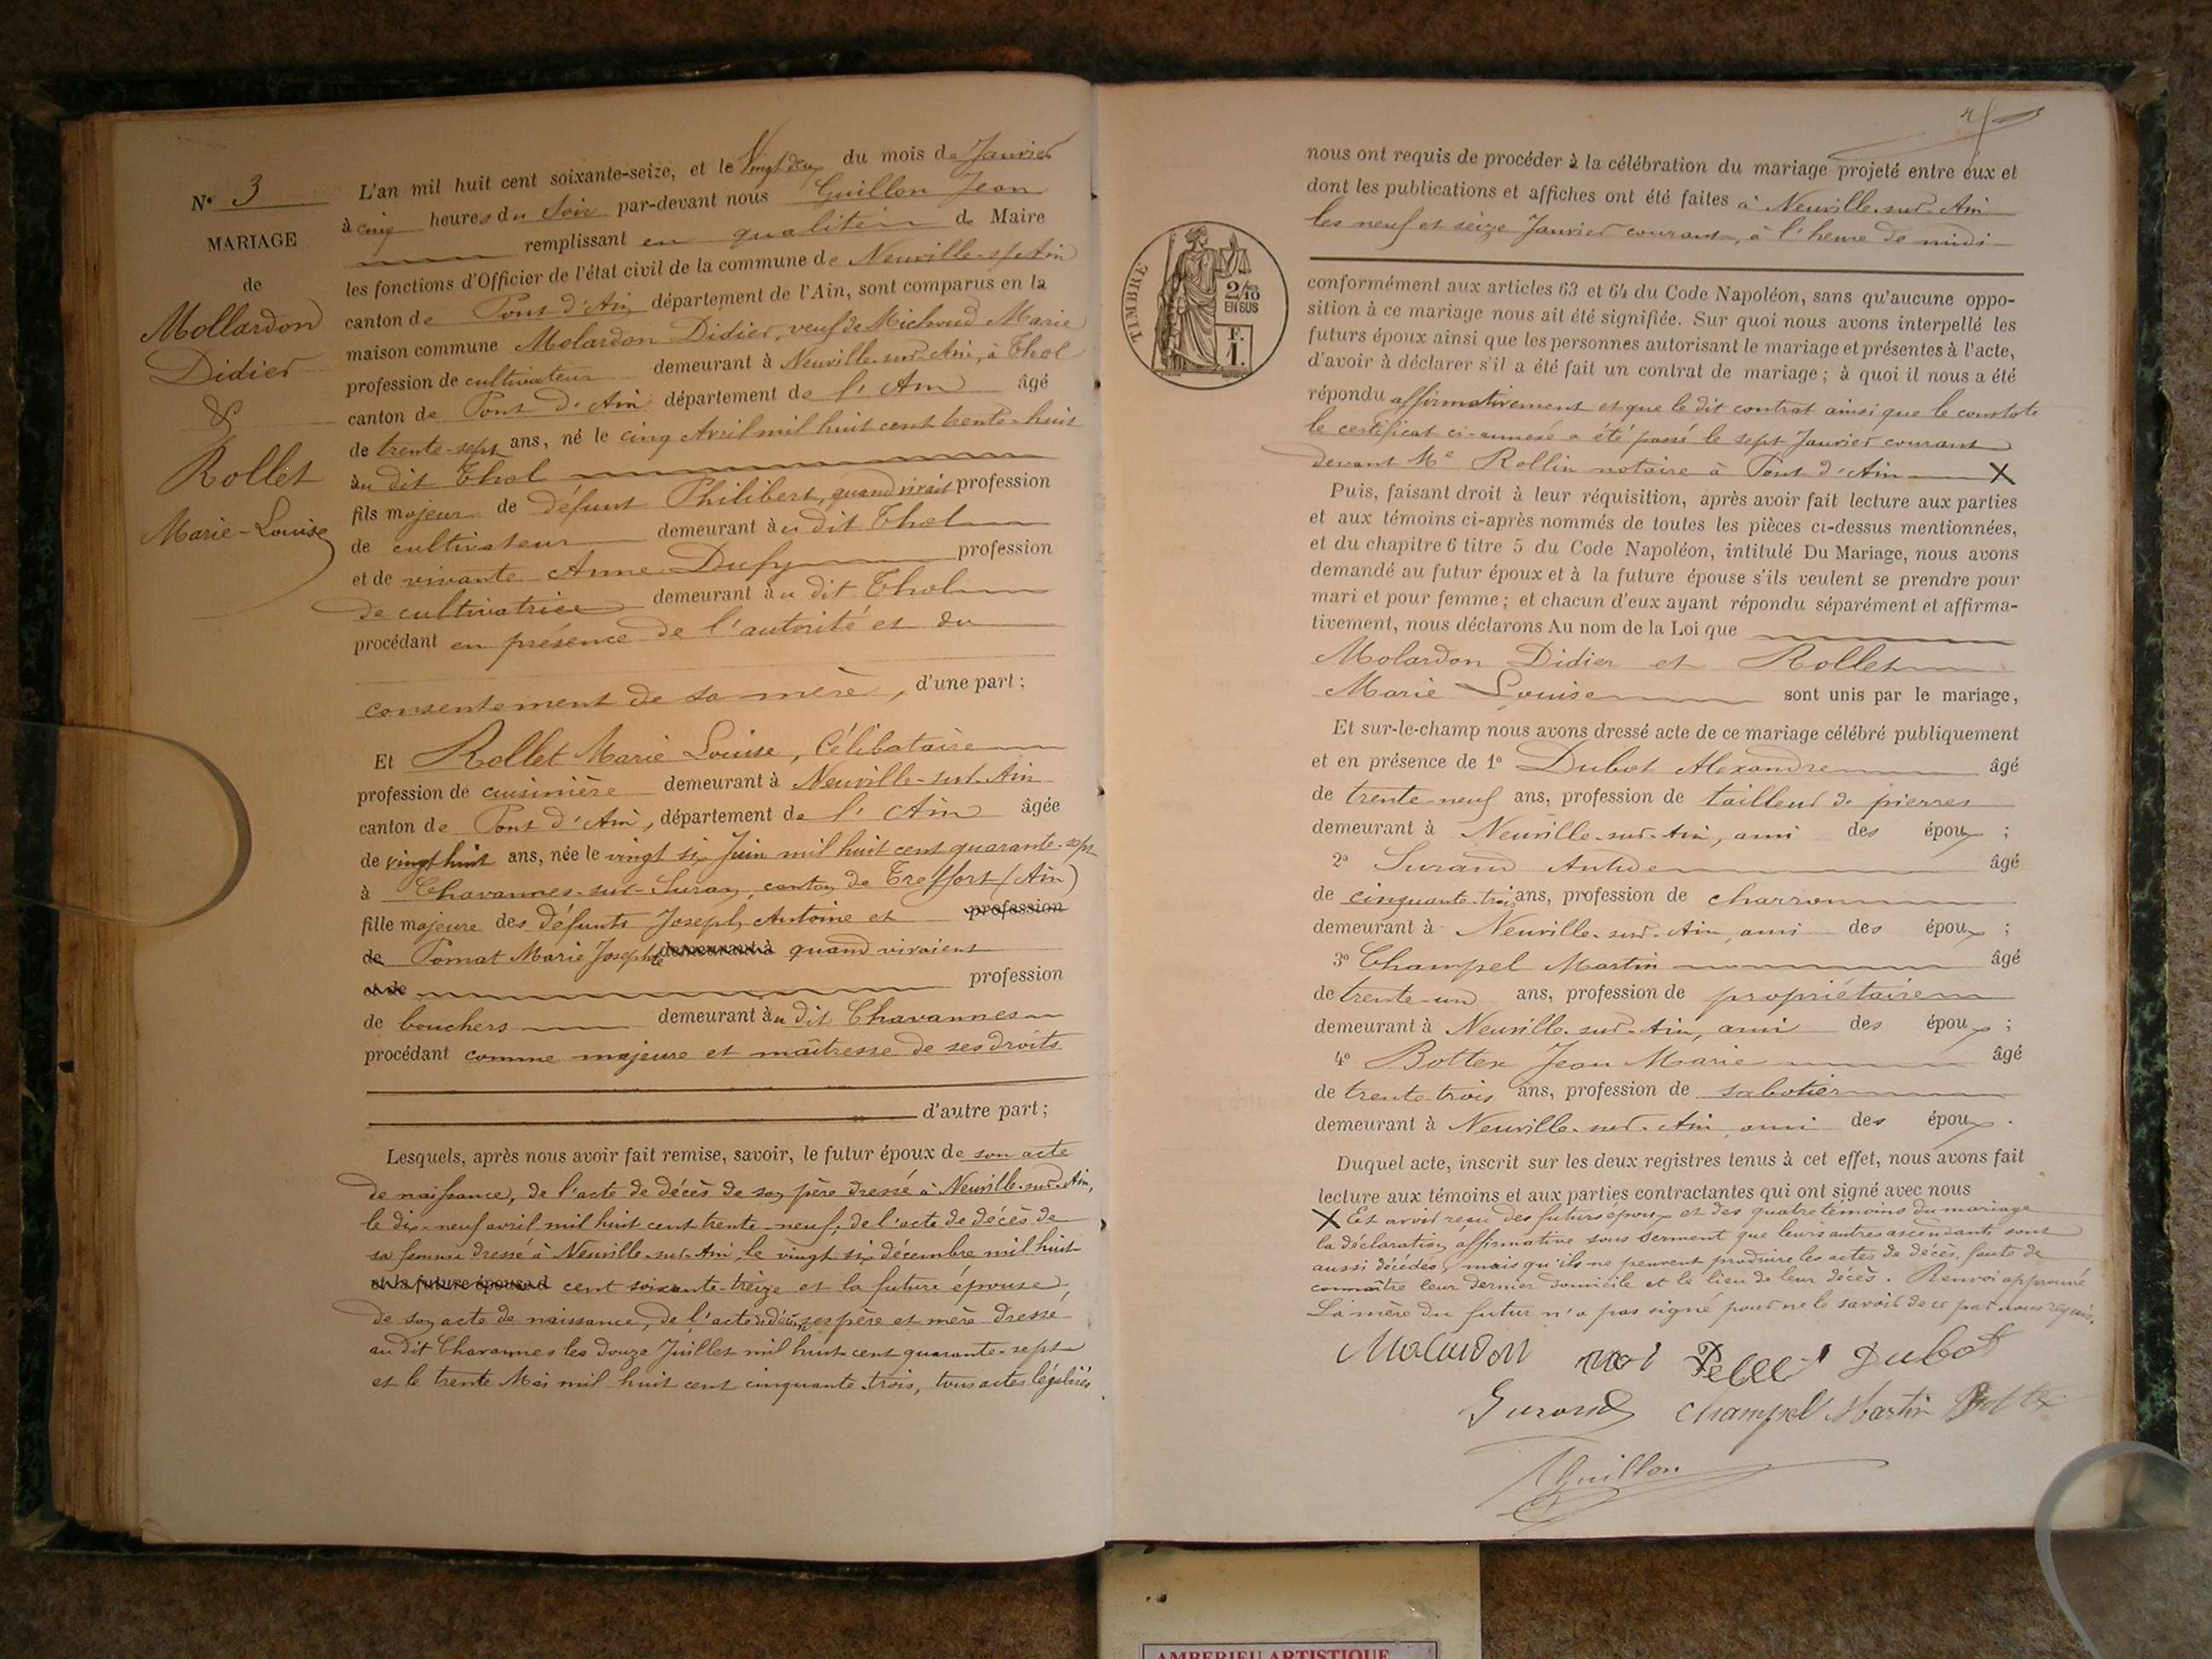 N° 3
MARIAGE
de
Mollardon
Didier
&
Rollet
Marie-Louise
L'an mil huit cent soixante-seize, et le Vingt deux du mois de Janvier
à cinq heures du Soir par-devant nous Guillon Jean
remplissant en qualité de Maire
les fonctions d'Officier de l'état civil de la commune de Neuville-s/-Ain
canton de Pont d'Ain département de l'Ain, sont comparus en la
maison commune Molardon Didier, veuf de Michoud Marie
profession de cultivateur demeurant à Neuville-sur-Ain, à Thol
canton de Pont d'Ain département de l'Ain âgé
de trente-sept ans, né le cinq Avril mil huit cent trente-huit
au dit Thol
fils majeur de défunt Philibert, quand vivait profession
de cultivateur demeurant àu dit Thol
et de vivante Anne Dufy profession
de cultivatrice demeurant àu dit Thol
procédant en présence de l'autorité et du
consentement de sa mère, d'une part;
Et Rollet Marie Louise, Célibataire
profession de cuisinière demeurant à Neuville-sur-Ain
canton de Pont d'Ain, département de l'Ain âgée
de vingt huit ans, née le vingt six Juin mil huit cent quarante-sept
à Chavannes-sur-Suran, canton de Treffort (Ain)
fille majeure des défunts Joseph Antoine et profession
de Pomat Marie Josephte demeurant à quand vivaient
et de profession
de bouchers demeurant àu dit Chavannes
procédant comme majeure et maîtresse de ses droits
d'autre part;
Lesquels, après nous avoir fait remise, savoir, le futur époux de son acte
de naissance, de l'acte de décès de son père dressé à Neuville-sur-Ain,
le dix-neuf avril mil huit cent trente-neuf, de l'acte de décès de
sa femme dressé à Neuville-sur-Ain, le vingt six décembre mil huit
et la future épouse d cent soixante-treize et la future épouse,
de son acte de naissance, de l'acte de décès ses père et mère dressé
au dit Chavannes les douze Juillet mil huit cent quarante-sept
et le trente Mai mil huit cent cinquante-trois, tous actes légalisés
nous ont requis de procéder à la célébration du mariage projeté entre eux et
dont les publications et affiches ont été faites à Neuville-sur-Ain
les neuf et seize Janvier courant, à l'heure de midi
TIMBRE
2/10
EN SUS
F.
1.
conformément aux articles 63 et 64 du Code Napoléon, sans qu'aucune oppo-
sition à ce mariage nous ait été signifiée. Sur quoi nous avons interpellé les
futurs époux ainsi que les personnes autorisant le mariage et présentes à l'acte,
d'avoir à déclarer s'il a été fait un contrat de mariage; à quoi il nous a été
répondu affirmativement et que le dit contrat ainsi que le constate
le certificat ci-annexé a été passé le sept Janvier courant
devant Me Rollin notaire à Pont d'Ain X
Puis, faisant droit à leur réquisition, après avoir fait lecture aux parties
et aux témoins ci-après nommés de toutes les pièces ci-dessus mentionnées,
et du chapitre 6 titre 5 du Code Napoléon, intitulé Du Mariage, nous avons
demandé au futur époux et à la future épouse s'ils veulent se prendre pour
mari et pour femme; et chacun d'eux ayant répondu séparément et affirma-
tivement, nous déclarons Au nom de la Loi que
Molardon Didier et Rollet
Marie Louise sont unis par le mariage,
Et sur-le-champ nous avons dressé acte de ce mariage célébré publiquement
et en présence de 1° Dubot Alexandre âgé
de trente-neuf ans, profession de tailleur de pierres
demeurant à Neuville-sur-Ain, ami des époux ;
2° Surand âgé
de cinquante-trois ans, profession de charron
demeurant à Neuville-sur-Ain, ami des époux ;
3° Champel Martin âgé
de trente-un ans, profession de propriétaire
demeurant à Neuville-sur-Ain, ami des époux ;
4° Bottex Jean Marie âgé
de trente-trois ans, profession de sabotier
demeurant à Neuville-sur-Ain, ami des époux .
Duquel acte, inscrit sur les deux registres tenus à cet effet, nous avons fait
lecture aux témoins et aux parties contractantes qui ont signé avec nous
X Et avoir reçu des futurs époux et des quatre témoins du mariage
la déclaration affirmative sous serment que leurs autres ascendants sont
aussi décédés, mais qu'ils ne peuvent produire les actes de décès, faute de
connaître leur dernier domicile et le lieu de leur décès. Renvoi approuvé
La mère du futur n'a pas signé pour ne le savoir de ce par nous requis.
Molardon Dubot
Surand Champel Martin Bottex
Guillon
AMBERIEU ARTISTIQUE